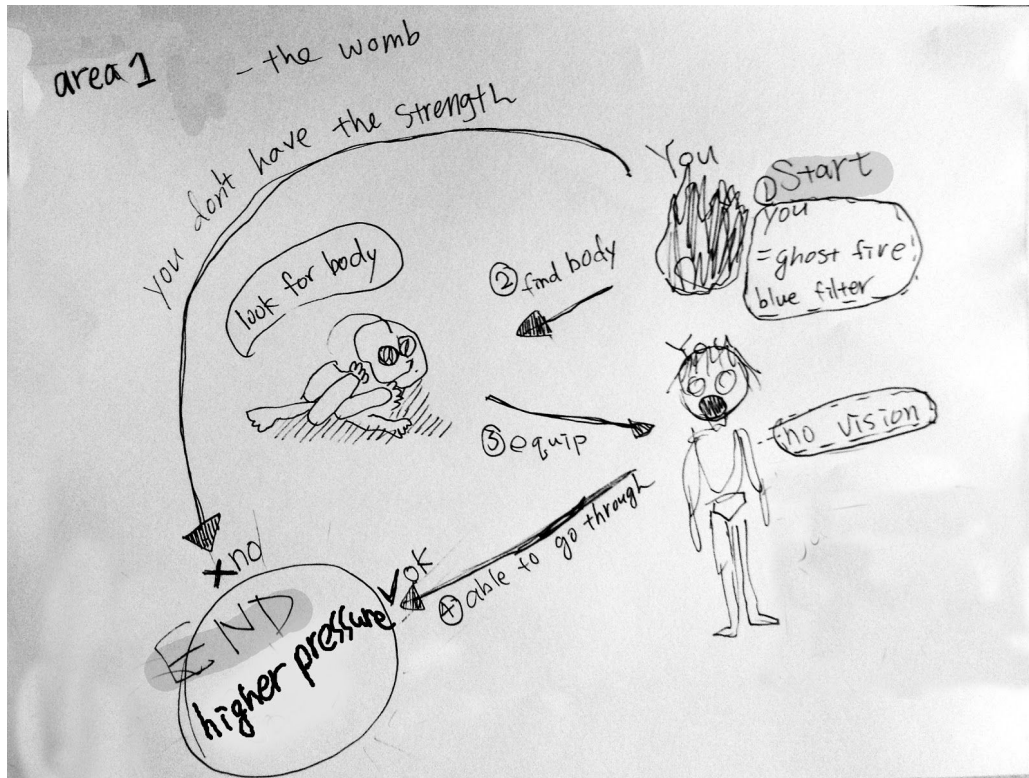 area 1 - the womb
you don't have the strength
You
① Start
you
= ghost fire
blue filter
look for body
② find body
You
③ equip
no vision
x no
ok
④ able to go through
END
higher pressure